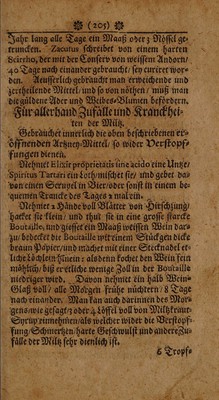 (205)
Jahr lang alle Tag ein Maaß oder 3 Rössel ge-
truncken. Zacutus schreibet von einem harten
Scirrho, der mit der Conserv von weissem Andorn/
40 Tage nach einander gebraucht/ sey curiret wor-
den. Aeusserlich gebraucht man erweichende und
zertheilende Mittel/ und so von nöthen/ muß man
die güldene Ader und Weibes-Blumen befördern.
Für allerhand Zufälle und Kranckhei-
ten der Miltz.
Gebrauchet innerlich die oben beschriebenen er-
öffnenden Artzney-Mittel/ so wider Verstopf-
fungen dienen.
Nehmet Elixir proprietatis sine acido eine Untze/
Spiritus Tartari ein Loth/mischet sie/ und gebet da-
von einen Scrupel in Bier/ oder sonst in einem be-
quemen Trancke des Tages 2 mal ein.
Nehmet 2 Hände voll Blätter von Hirschzung/
hacket sie klein/ und thut sie in eine grosse starcke
Bouteille, und giesset ein Maaß weissen Wein dar-
zu: bedecket die Bouteille mit einem Stückgen dicke
blauen Papier/ und machet mit einer Stecknadel et-
liche Löchlein hinein: alsdenn kochet den Wein fein
mählich/ biß er etliche wenige Zoll in der Bouteille
niedriger wird. Davon nehmet ein halb Wein-
Glaß voll/ alle Morgen frühe nüchtern/ 8 Tage
nach einander. Man kan auch darinnen des Mor-
gens/wie gesagt/ 2 oder 4 Löffel voll von Miltzkraut-
Syrup einnehmen/ als welcher wider die Verstopf-
fung/ Schmertzen/ harte Geschwulst und andere Zu-
fälle der Miltz sehr dienlich ist.
6 Tropf-